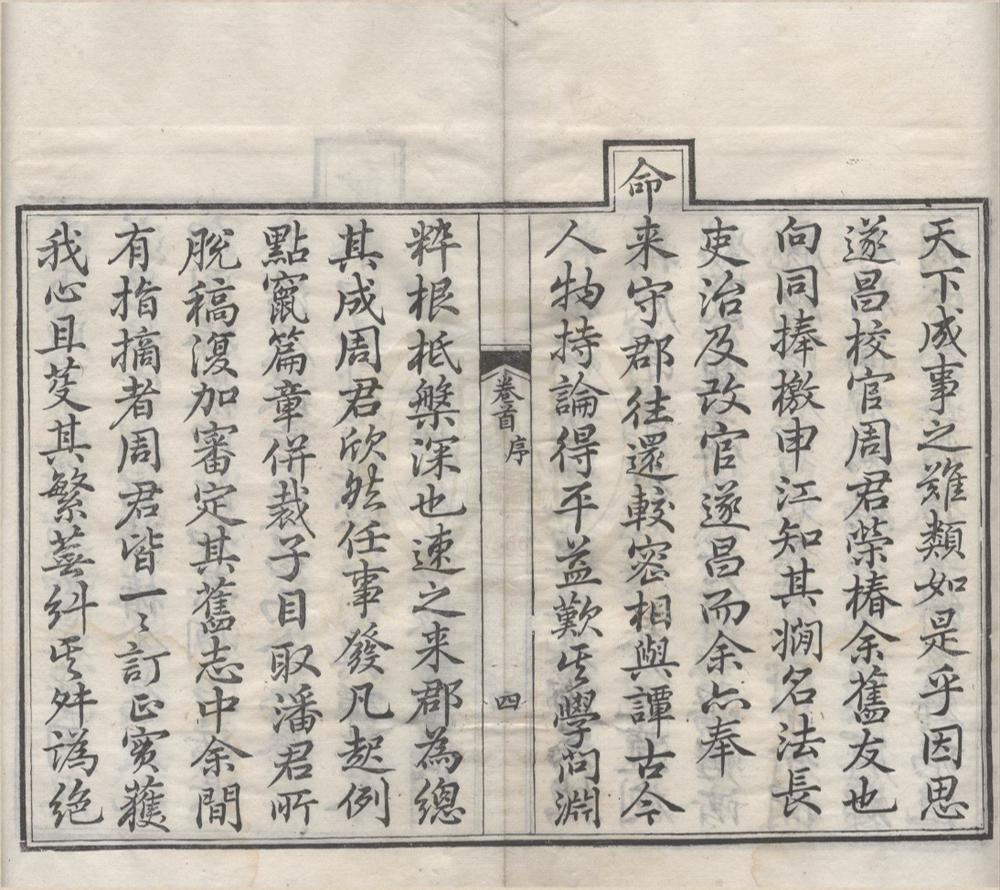 天下成事之難類如是乎因思
遂昌校官周君榮椿余舊友也
向同捧檄申江知其嫺名法長
吏治及改官遂昌而余亦奉
命
来守郡往還較密相與譚古今
人物持論得平益歎其學問淵
卷首
序
四
粹根柢槃深也速之来郡為總
其成周君欣然任事發凡起例
點竄篇章併裁子目取潘君所
脫稿復加審定其舊志中余間
有指摘者周君皆一〻訂正實獲
我心且芟其繁蕪糾其舛譌絶